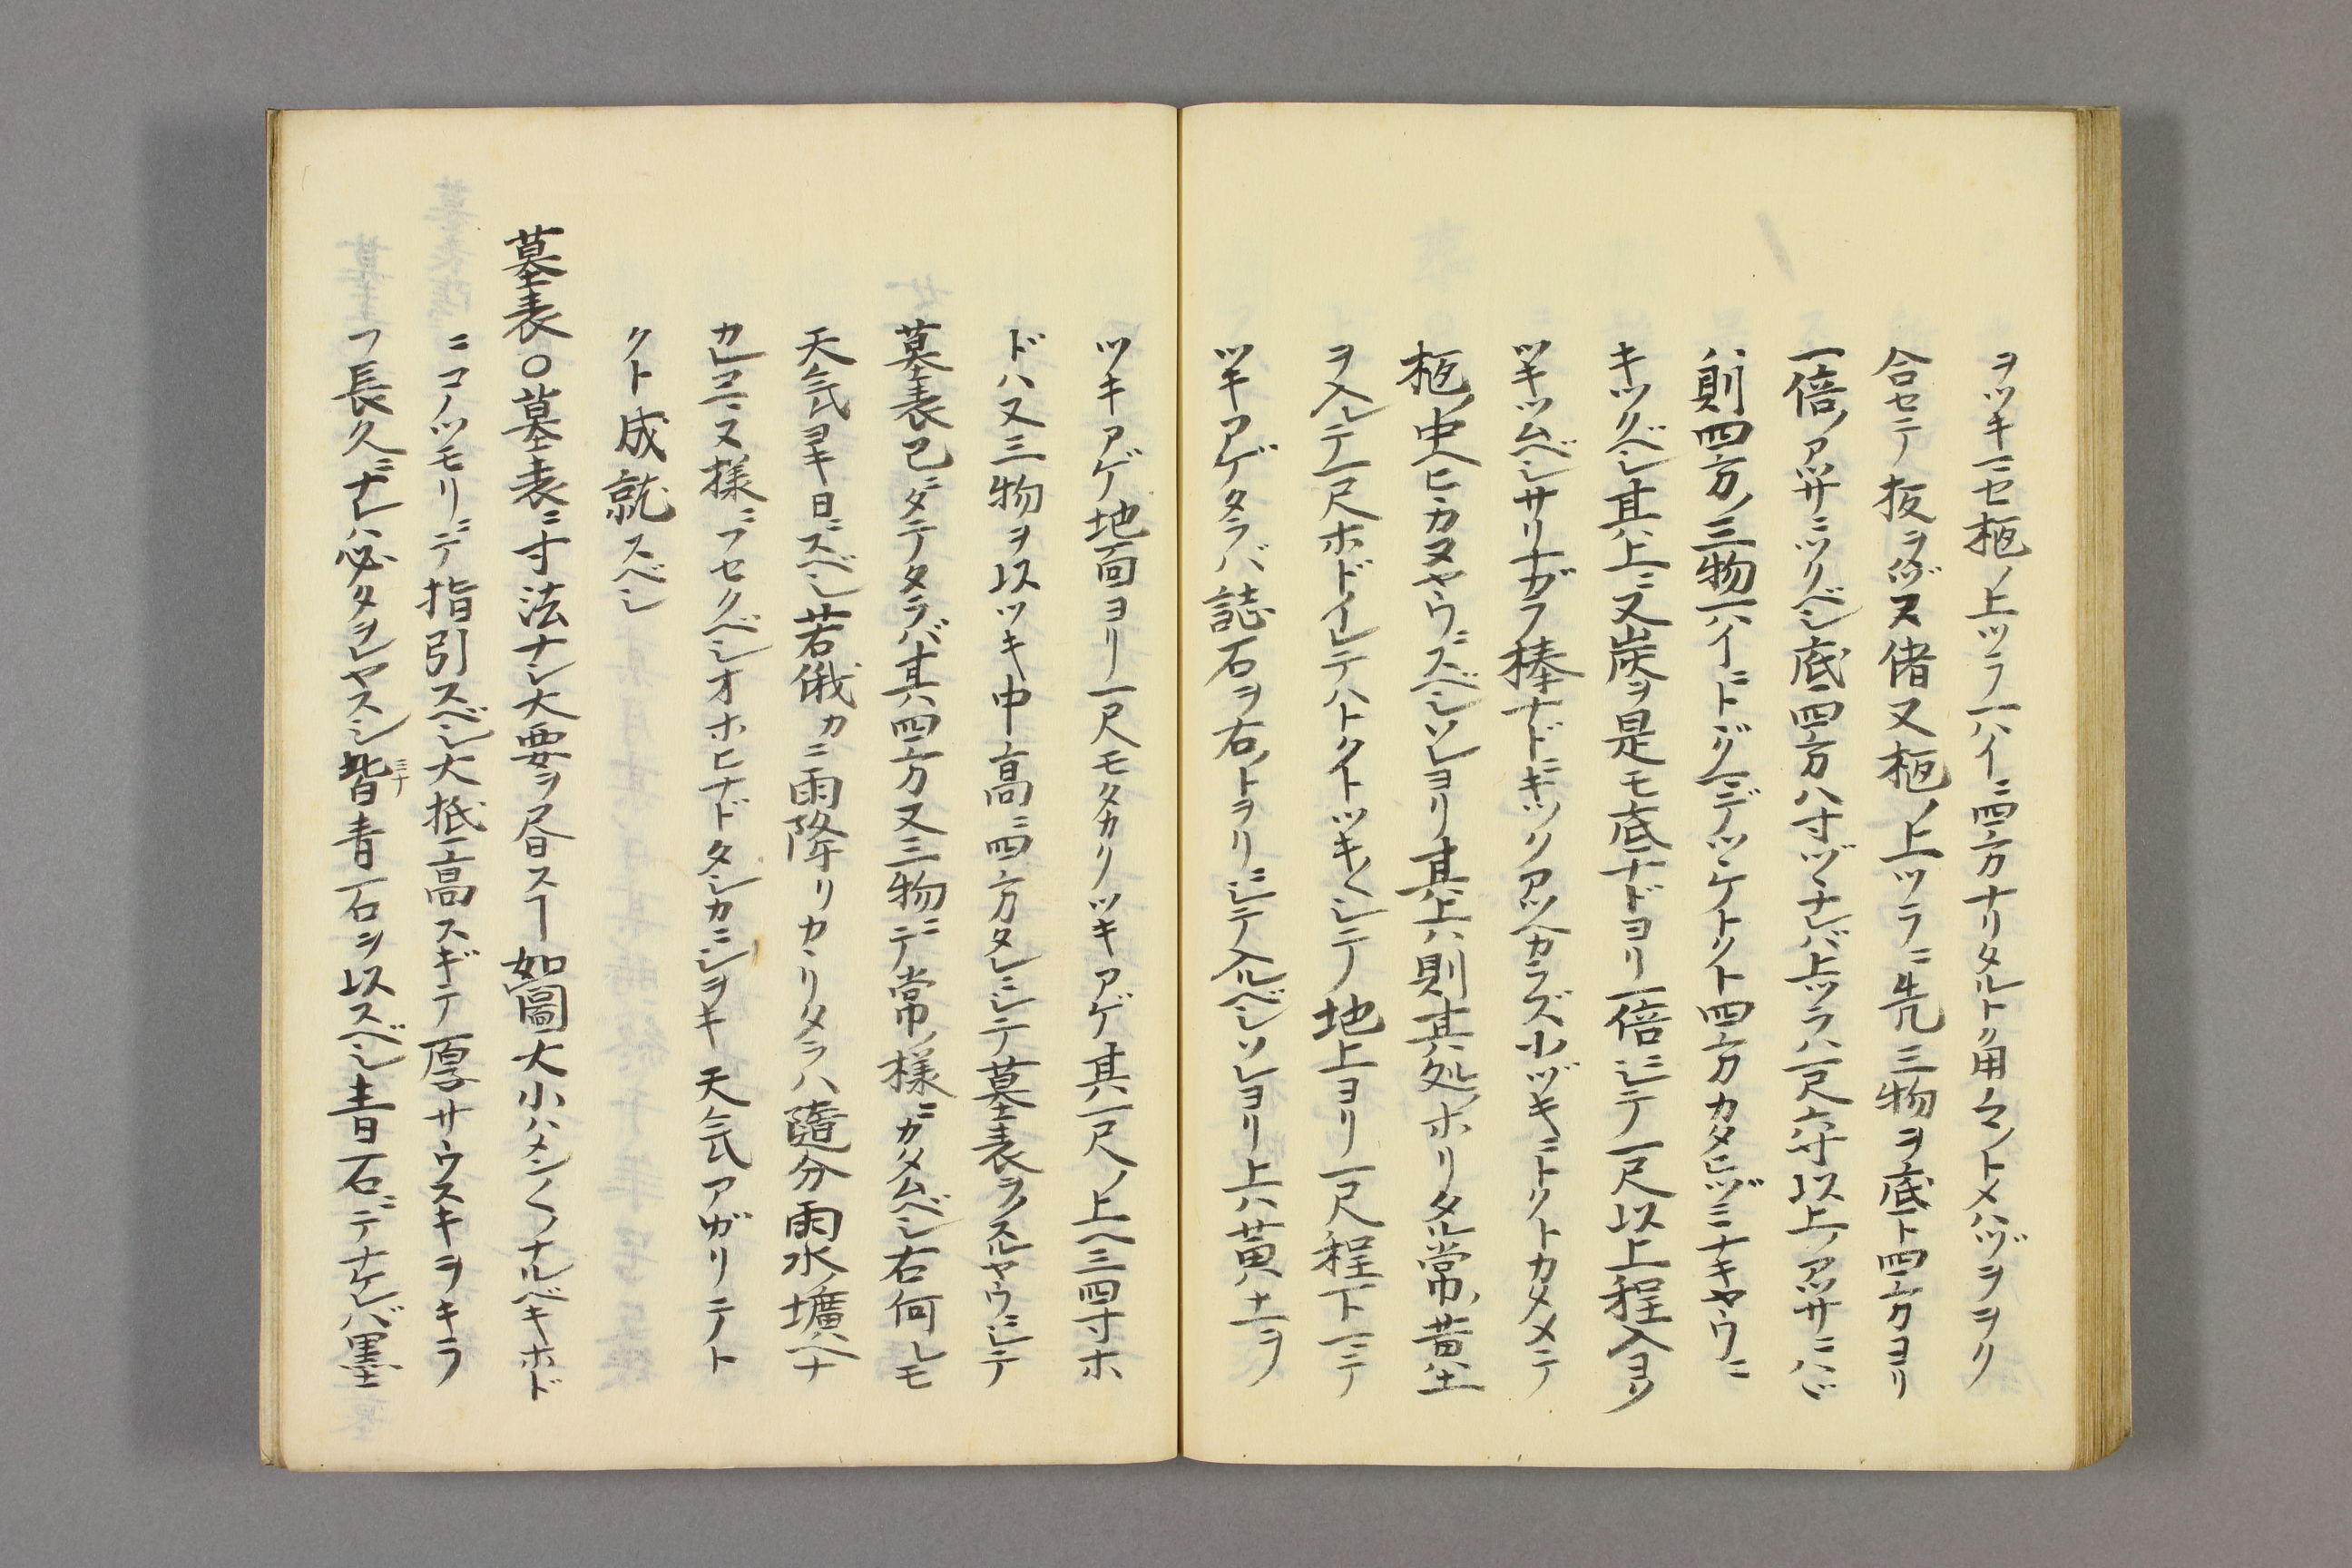 ヲツキ一ニセ柩ノ上ツラ一ハイニ四方ナリタルトク用ウマントメハヅヲヲク
合セテ抜ラヅヌ偖又柩ノ上ツラニ先三物ヲ底ト四方ヨリ
一倍ノアツサニツクベシ底ニ四方八寸ヅヽナレバ上ツラハ一尺六寸以上ノアツサニハヾ
ハ則四方ノ三物一ハイニドヾクマデツヽケトクト四方カタヒヅミナキヤウニ
キツクベシ其ノ上ニ又炭ヲ是モ底ナドヨリ一倍ニシテ一尺以上程入ヨク
ツキツムベシサリナガラ棒ナドニキツクアツヘカラズ小ヅキニトクトカタメテ
柩ノ中ヘヒヽカヌヤウニスベシソレヨリ其上ハ則其処ノホリタル常ノ黄土
ヲ入レテ一尺ホドイレテハトクトツキ〱シテ地上ヨリ一尺程下ニテ
ツキアゲタラバ誌石ヲ右ノトヲリニシテ入ルベシソレヨリ上ハ黄土ヲ
ツキアゲ地面ヨリ一尺モタカクツキアゲ其一尺ノ上ヘ三四寸ホ
ドハ又三物ヲ以ツキ中高ニ四方タレニシテ墓表ヲスルヤウニシテ
墓表已ニタテタラバ其四方又三物ニテ常ノ様ニカタムベシ右何レモ
天気ヨキ日ニスベシ若俄カニ雨降リカヽリタラハ隨分雨水ノ壙ヘナ
カレコマヌ様ニフセクベシオホヒナドタシカニシヲキ天気アガリテト
クト成就スベシ
墓表〇墓表ニ寸法ナシ大要ヲ居スヿ如圖大小ハメン〱ナルベキホド
ニコノツモリニテ指引スベシ大抵高スギテ厚サウスキヲキラ
フ長久ニナレハ必タヲレヤスシ皆青石ヲ以スベシ青石ニテナケレバ墨